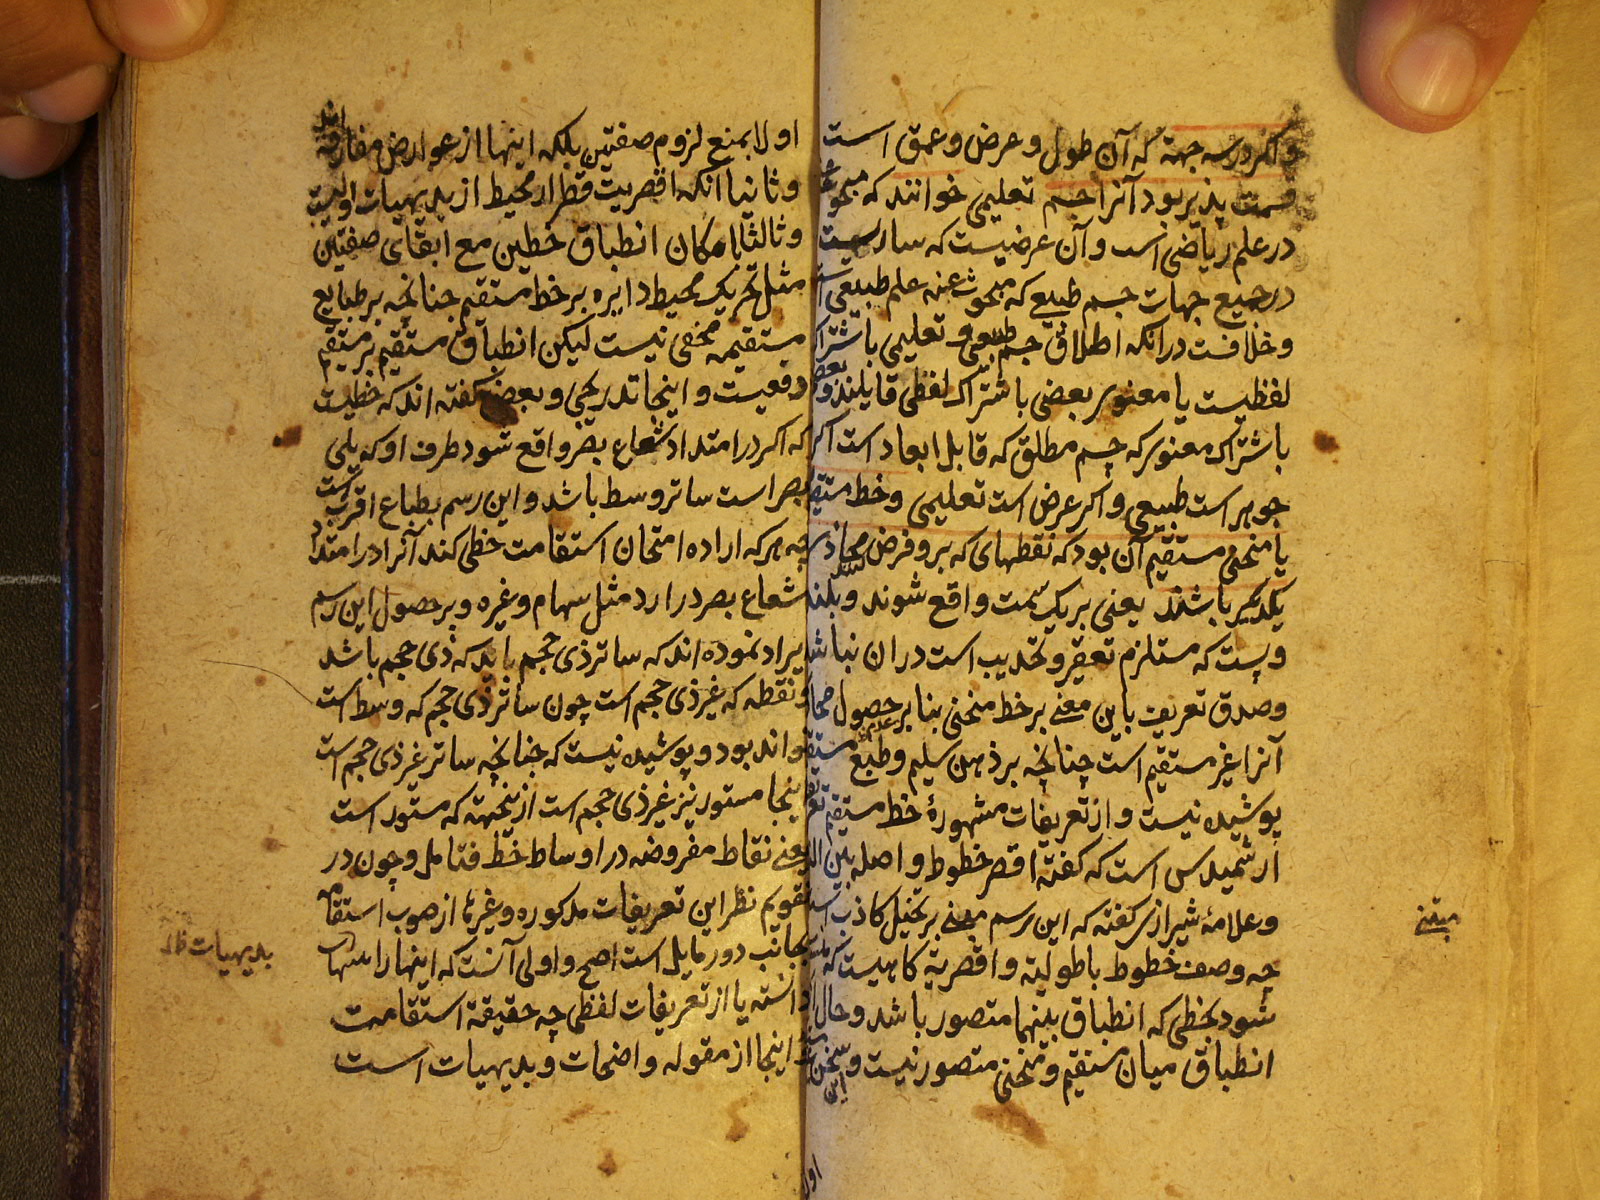 و اکر در سه جهة که آن طول و عرض و عمق است
قسمت پذیر بود آنرا جسم تعلیمی خوانند که مبحوث عنه
در علم ریاضی است و آن عرضیست که ساریست
در جمیع جهات جسم طبیعی که مبحوث عنه علم طبیعی است
و خلافست در انکه اطلاق جسم طبیعی و تعلیمی باشتراک
لفظیست یا معنوی بعضی باشتراک لفظی قایلند و بعضی
باشتراک معنوی که جسم مطلق که قابل ابعاد است اکر
جوهر است طبیعی و اکر عرض است تعلیمی و خط مستقیم
یا منحنی مستقیم آن بود که نقطهای که برو فرض کنند محاذی
یکدیکر باشند یعنی بر یک سمت واقع شوند و بلند
و پست که مستلزم تقعیر و تحدیب است در ان نباشد
و صدق تعریف باین معنی بر خط منحنی بنا بر حصول محا
آنرا غیر مستقیم است چنانچه بر ذهن سلیم و طبع مستقیم
پوشیده نیست و از تعریفات مشهورهٔ خط مستقیم تعریف
ارشمیدس است که کفته اقصر خطوط واصله بین
و علامهٔ شیرازی کفته که این رسم مبنی بر تخیل کاذب است
چه وصف خطوط باطولیة و اقصریة کاهیست که
شود بخطی که انطباق بینهما متصور باشد و حال انکه
انطباق میان مستقیم و منحنی متصور نیست و سخن
مبتنی
اولا
اولا بمنع لزوم صفتین بلکه اینها از عوارض مفارقه اند
و ثانیا انکه اقصریت قطر از محیط از بدیهیات اولیست
و ثالثا بامکان انطباق خطین مع ابقای صفتین
مثل تحریک محیط دایره بر خط مستقیم چنانچه بر طبایع
مستقیمه مخفی نیست لیکن انطباق مستقیم بر مستقیم
دفعیست و اینجا تدریجی و بعضی کفته اند که خطیست
که اکر در امتداد شعاع بصر واقع شود طرف او که یلی
بصر است ساتر وسط باشد و این رسم بطباع اقرب است
چه هر که اراده امتحان استقامت خطی کند آنرا در امتداد
شعاع بصر در ارد مثل سهام و غیره و بر حصول این رسم
ایراد نموده اند که ساتر ذی حجم باید که ذی حجم باشد
و نقطه که غیر ذی حجم است چون ساتر ذی حجم که وسط است
تواند بود و پوشیده نیست که چنانچه ساتر غیر ذی حجم است
اینجا مستور نیز غیر ذی حجم است از ینجهة که مستور است
یعنی نقاط مفروضه در اوساط خط فتامل و چون در
تقویم نظر این تعریفات مذکوره و غیرها از صوب استقامة
بجانب دور مایل است اصح و اولی آنست که اینها را تنبیهات
دانسته یا از تعریفات لفظی چه حقیقة استقامت
اینجا از مقوله واضحات و بدیهیات است
بدیهیات